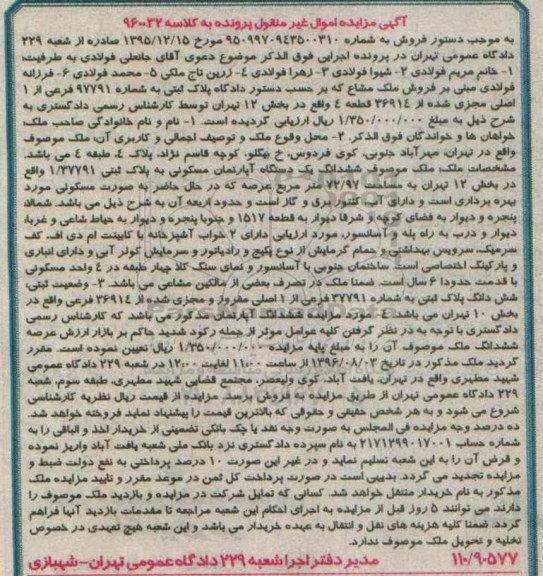 آگهی مزایده اموال غیر منقول پرونده به کلاسه ۹۶۰۰۳۲
به موجب دستور فروش به شماره ۹۵۰۹۹۷۰۹۴۳۵۰۰۳۱۰ مورخ ۱۳۹۵/۱۲/۱۵ صادره از شعبه ۲۲۹
دادگاه عمومی تهران در پرونده اجرایی فوق الذکر موضوع دعوی آقای جانعلی فولادی به طرفیت:
۱- خانم مریم فولادی ۲- شیوا فولادی ۳- زهرا فولادی ۴- زرین تاج ملکی ۵- محمد فولادی ۶- فرزانه
فولادی مبنی بر فروش ملک مشاع که بر حسب دستور دادگاه پلاک ثبتی به شماره ۹۷۷۹۱ فرعی از ۱
اصلی مجزی شده از ۳۶۹۱۴ قطعه ۴ واقع در بخش ۱۲ تهران توسط کارشناس رسمی دادگستری به
شرح ذیل به مبلغ ۱/۳۵۰/۰۰۰/۰۰۰ ریال ارزیابی گردیده است. ۱- نام و نام خانوادگی صاحب ملک:
خواهان ها و خواندگان فوق الذکر. ۲- محل وقوع ملک و توصیف اجمالی و کاربری آن: ملک موصوف
واقع در تهران، مهرآباد جنوبی، کوی فردوس، خ بیگلو، کوچه قاسم نژاد، پلاک ۴، طبقه ۴ می باشد.
مشخصات ملک: ملک موصوف ششدانگ یک دستگاه آپارتمان مسکونی به پلاک ثبتی ۱/۳۷۷۹۱ واقع
در بخش ۱۲ تهران به مساحت ۷۲/۹۷ متر مربع عرصه که در حال حاضر به صورت مسکونی مورد
بهره برداری است و دارای آب کنتور برق و گاز است و حدود اربعه آن به شرح ذیل می باشد. شمالا:
پنجره و دیوار به فضای کوچه، شرقا دیوار به قطعه ۱۵۱۷ و جنوبا پنجره و دیوار به حیاط مشاعی و غربا:
دیوار و درب به راه پله و آسانسور، مورد ارزیابی دارای ۲ خواب آشپزخانه با کابینت ام دی اف، کف
سرمیک، سرویس بهداشتی و حمام گرمایش از نوع پکیج و رادیاتور و سرمایش کولر آبی و دارای انباری
و پارکینگ اختصاصی است. ساختمان جنوبی با آسانسور و نمای سنگ کلا چهار طبقه در ۴ واحد مسکونی
با قدمت حدودا ۶ سال است. ضمنا ملک در تصرف بعضی از مالکین مشاعی می باشد. ۳- وضعیت ثبتی:
شش دانگ پلاک ثبتی به شماره ۳۷۷۹۱ فرعی از ۱ اصلی مفروز و مجزی شده از ۳۶۹۱۴ فرعی واقع در
بخش ۱۰ تهران می باشد. ۴- مورد مزایده ششدانگ آپارتمان مذکور می باشد که کارشناس رسمی
دادگستری با توجه به در نظر گرفتن کلیه عوامل موثر از جمله رکود شدید حاکم بر بازار ارزش عرصه
ششدانگ ملک موصوف آن را به مبلغ پایه مزایده ۱/۳۵۰/۰۰۰/۰۰۰ ریال تعیین نموده است. مقرر
گردید ملک مذکور در تاریخ ۱۳۹۶/۰۸/۰۳ از ساعت ۱۱:۰۰ لغایت ۱۲:۰۰ در شعبه ۲۲۹ دادگاه عمومی
شهید مطهری واقع در تهران، یافت آباد، کوی ولیعصر، مجتمع قضایی شهید مطهری، طبقه سوم، شعبه
۲۲۹ دادگاه عمومی تهران از طریق مزایده به فروش برسد. مزایده از قیمت ریال نظریه کارشناسی
شروع می شود و به هر شخص حقیقی و حقوقی که بالاترین قیمت را پیشنهاد نماید فروخته خواهد شد.
ده درصد وجه مزایده فی المجلس به صورت وجه نقد یا چک بانکی تضمینی از خریدار اخذ و الباقی را به
شماره حساب ۲۱۷۱۲۹۹۰۱۷۰۰۱ به نام سپرده دادگستری نزد بانک ملی شعبه یافت آباد واریز نموده
و قرض آن را به این شعبه تسلیم نماید و در غیر این صورت ۱۰ درصد پرداختی به نفع دولت ضبط و
مزایده تجدید می گردد. بدیهی است در صورت پرداخت کل ثمن در موعد مقرر و تایید مزایده ملک
مذکور به نام خریدار منتقل خواهد شد. کسانی که تمایل شرکت در مزایده و بازدید ملک موصوف را
دارند می توانند ۵ روز قبل از مزایده به اجرای احکام این شعبه مراجعه تا مقدمات بازدید آنها فراهم
گردد. ضمنا کلیه هزینه های نقل و انتقال به عهده خریدار می باشد و این شعبه هیچ تعهدی در خصوص
تخلیه و تحویل ملک موصوف ندارد.
۱۱۰/۹۰۵۷۷ مدیر دفتر اجرا شعبه ۲۲۹ دادگاه عمومی تهران- شهبازی